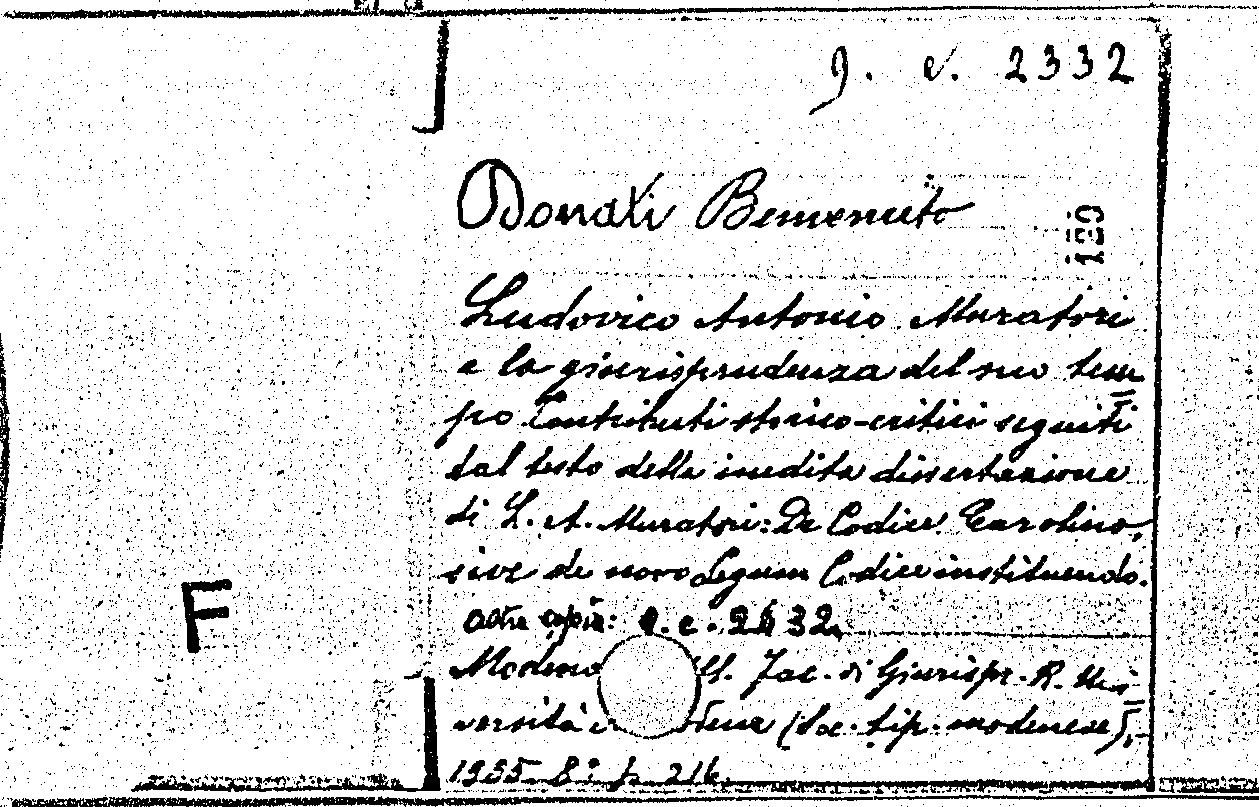 g. e. 2332
Donati Benvenuto
129
Ludovico Antonio Muratori
e la giurisprudenza del suo tem=
po Contributi storico-critici seguiti
dal testo della inedita dissertazione
di L. A. Muratori: De Codice Carolino,
sive de novo Legum Codice instituendo.
altra copia: e. 2432
F
Modena Fac. di Giurispr. R. Uni=
versità (Soc. tip. modenese),
1935 8° p. 216.